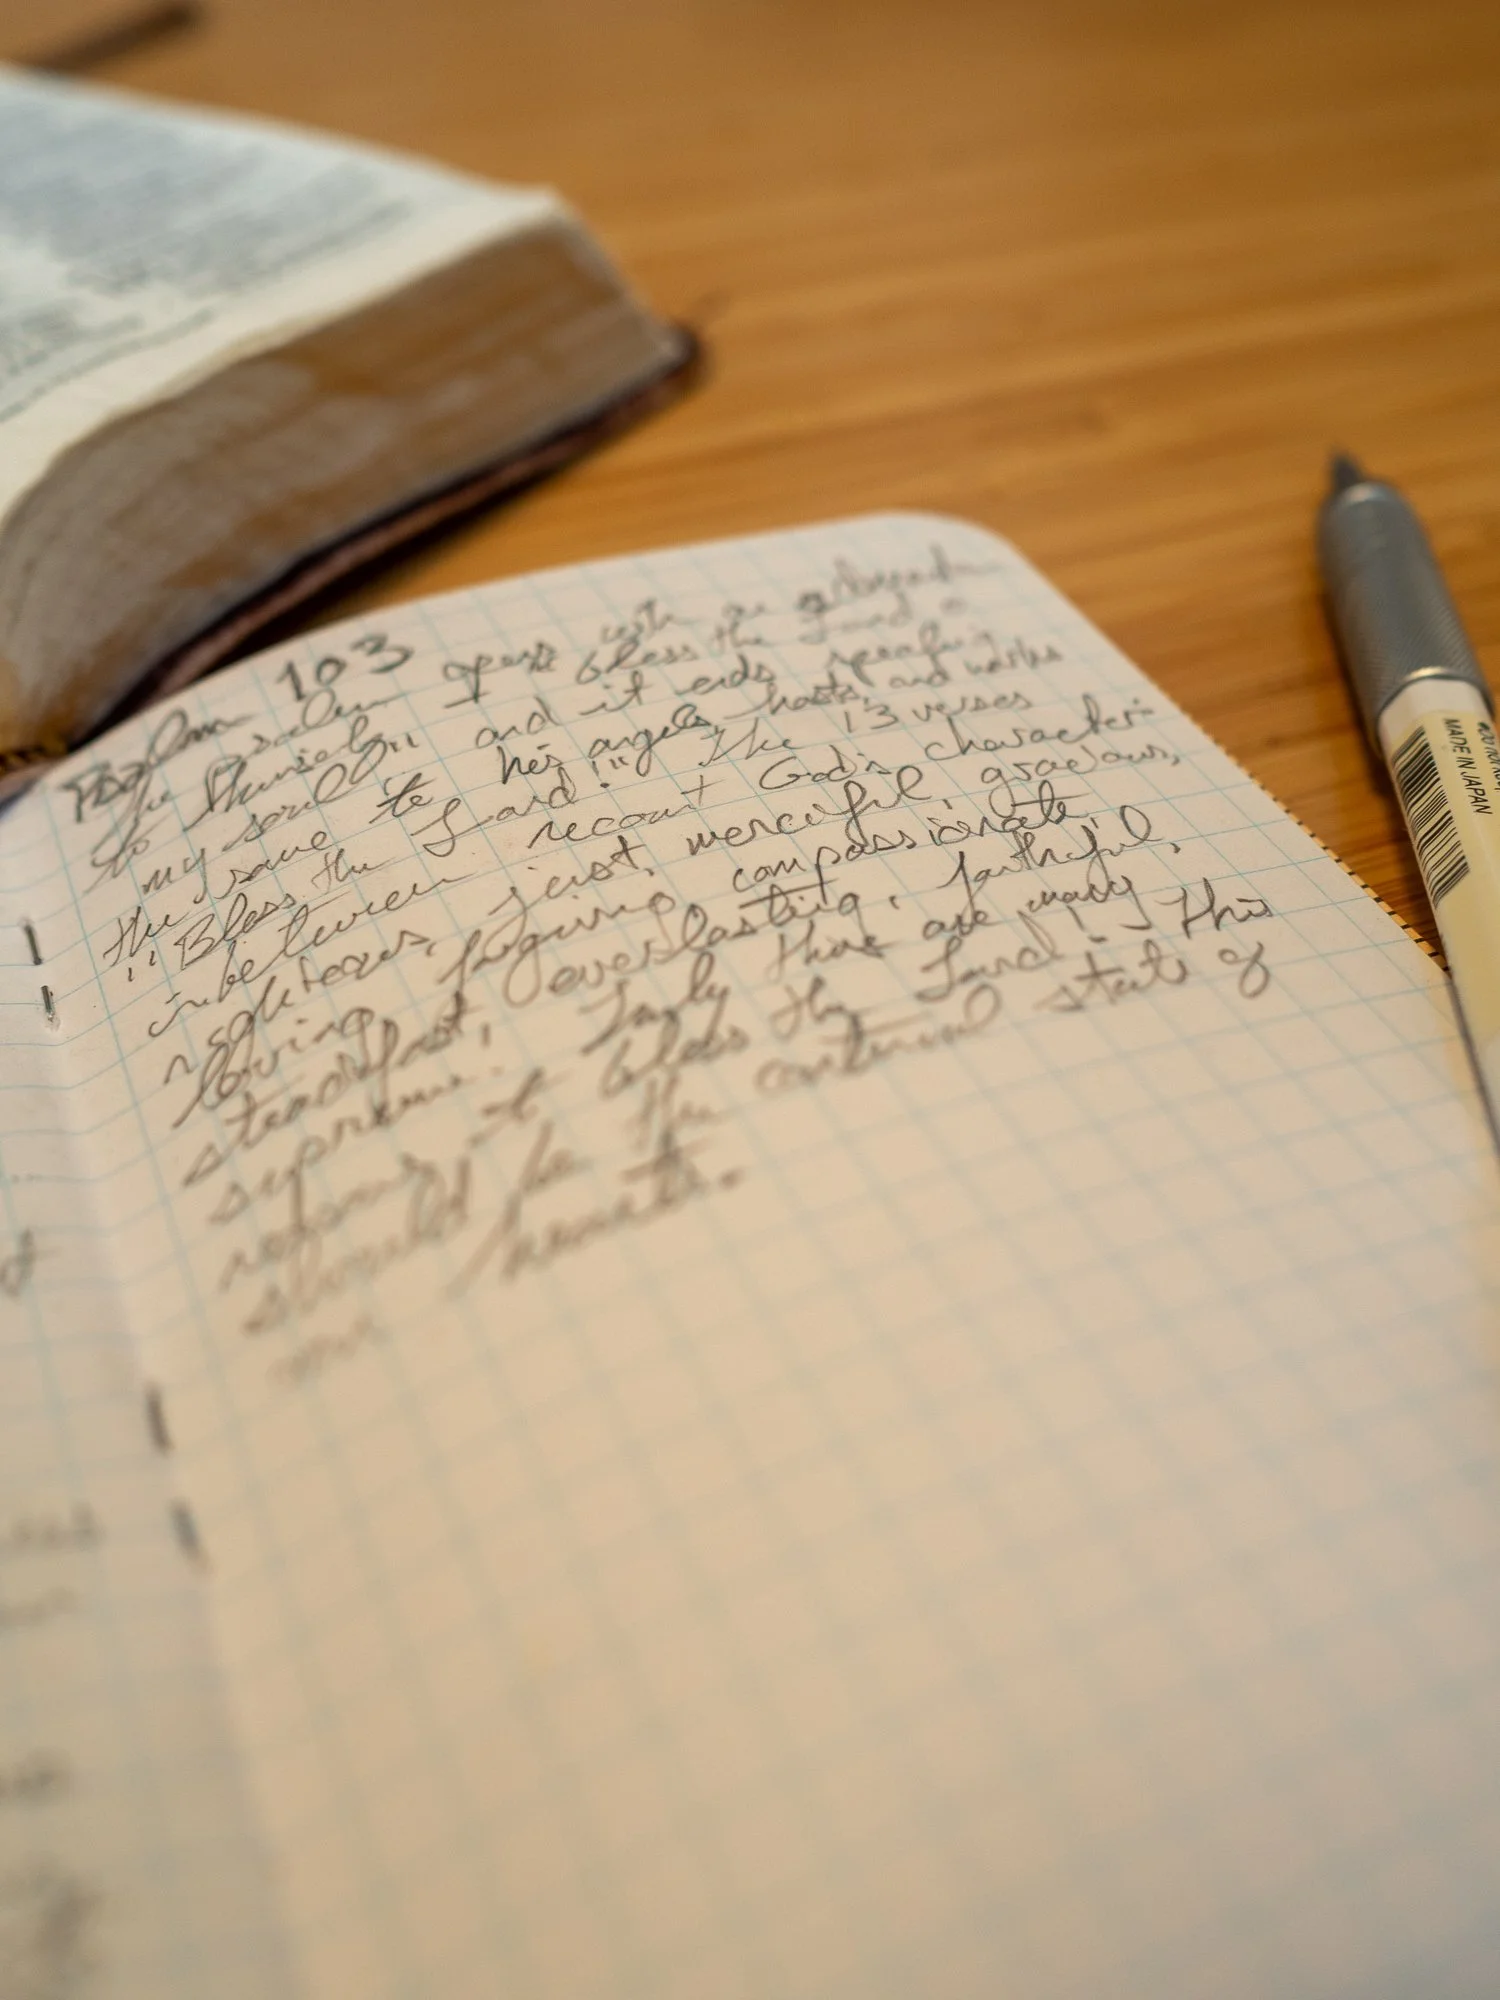 Psalm 103
The Psalm opens with an
to himself "bless the Lord o
my soul" and it ends speaking
the same to his angels, hosts, and works
"Bless the Lord!" The 13 verses
inbetween recount God's character:
righteous, just, merciful, gracious,
loving, forgiving, compassionate,
steadfast, everlasting, faithful,
supreme. Truly there are many
reasons to bless the Lord! This
should be the continual state of
our hearts.
MADE IN JAPAN